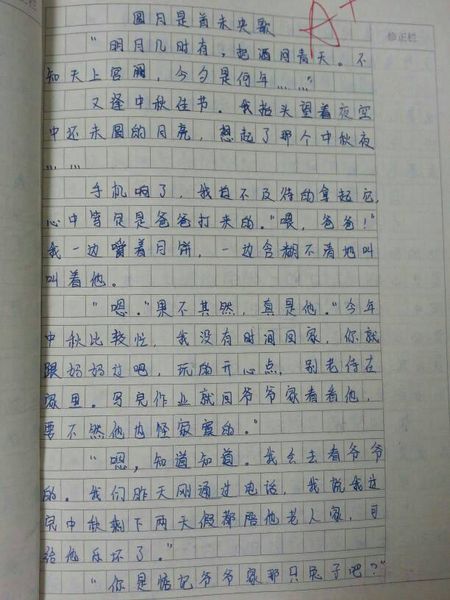 圆月是首未央歌
A+
修正栏
“明月几时有，把酒问青天。不
知天上宫阙，今夕是何年……”
又逢中秋佳节。我抬头望着夜空
中还未圆的月亮，想起了那个中秋夜
……
手机响了，我迫不及待的拿起它，
心中笃定是爸爸打来的。“喂，爸爸！”
我一边嚼着月饼，一边含糊不清地叫
叫着他。
“嗯。”果不其然，真是他。“今年
中秋比较忙，我没有时间回家，你就
跟妈妈过吧，玩的开心点，别老待在
家里。写完作业就回爷爷家看看他，
要不然他也怪寂寞的。”
“嗯，知道知道。我会去看爷爷
的。我们昨天刚通过电话，我说我过
完中秋剩下两天假都陪他老人家，可
给他乐坏了。”
“你是惦记爷爷家那只兔子吧？”